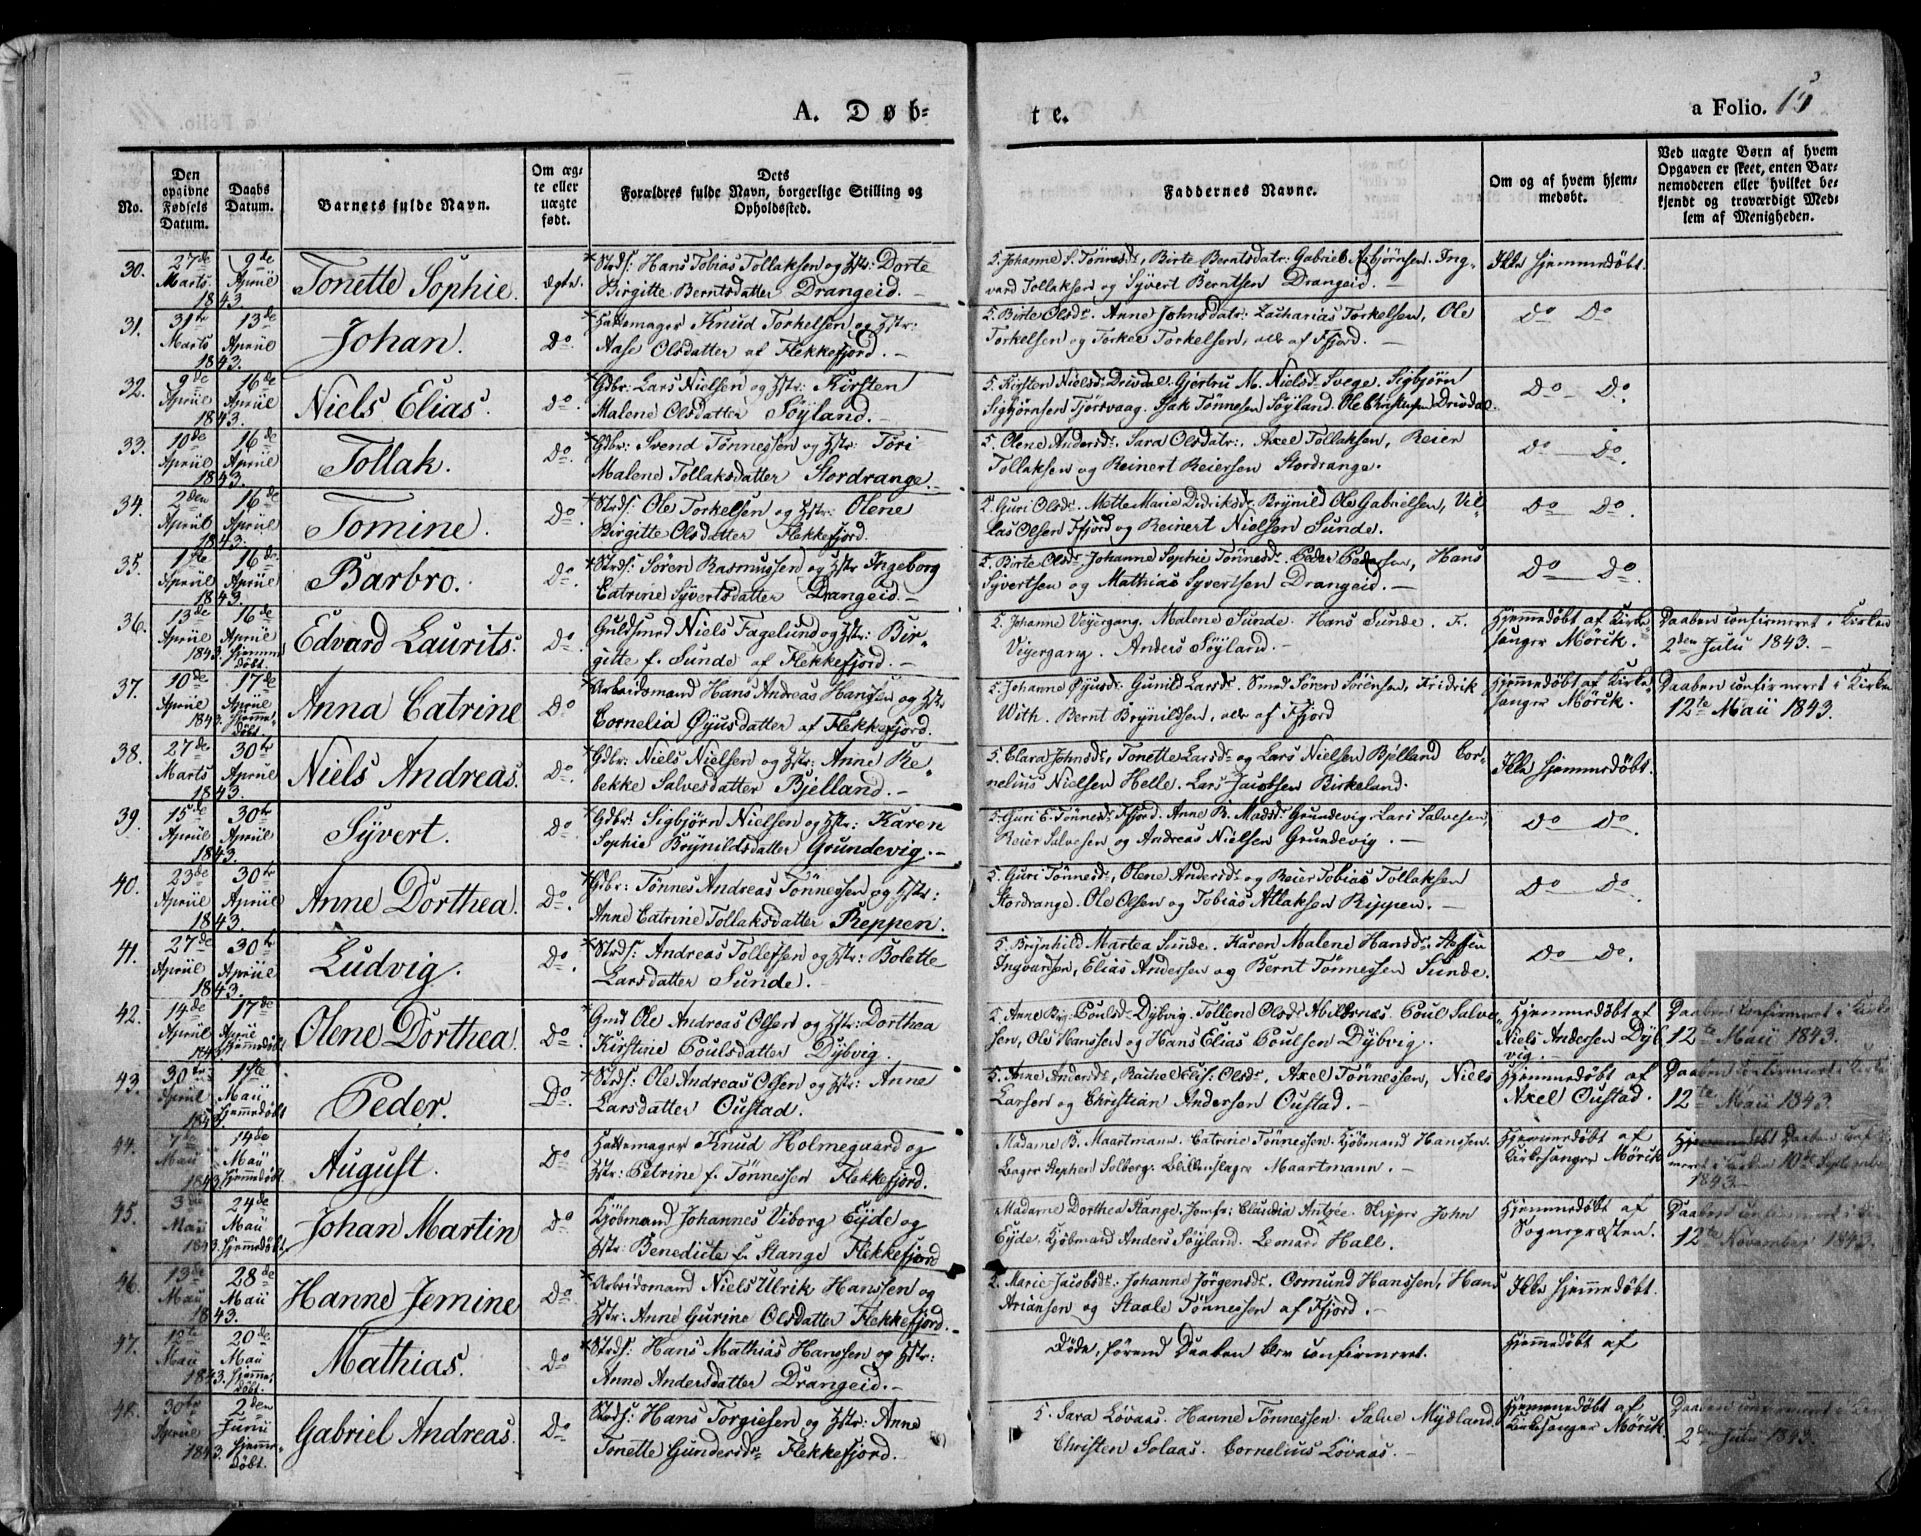 A. Døb=
te.
a Folio. 15
No.
Den opgivne Fødsels Datum.
Daabs Datum.
Barnets fulde Navn.
Om ægte eller uægte født.
Dets Forældres fulde Navn, borgerlige Stilling og Opholdssted.
Faddernes Navne.
Om og af hvem hjemmedøbt.
Ved uægte Børn af hvem Opgaven er skeet, enten Barnemoderen eller hvilket bekjendt og troværdigt Medlem af Menigheden.
30. 27de Marts 1843. 9de April Tonette Sophie. ægte.
Strds: Hans Tobias Tollaksen og Hstr: Dorte
Birgitte Berntsdatter Drangeid.
5. Johanne S. Tønnesdr, Birte Berntsdatr: Gabriel Asbjørnsen. Ing-
vard Tollaksen og Syvert Berntsen Drangeid.
Ikke Hjemmedøbt.
31. 31te Marts 1843. 13de April Johan. Do.
Hattemager Knud Torkelsen og Hstr:
Aase Olsdatter af Flekkefjord.
5. Birte Olsdr. Anne Johnsdatr: Zacharias Torkelsen, Ole
Torkelsen og Torkel Torkelsen, alle af Fjord.
Do Do
32. 9de April 1843. 16de April Niels Elias. Do.
Gdbr: Lars Nielsen og Hstr: Kirsten
Malene Olsdatter Søyland.
5. Kirsten Nielsd: Drivdal. Gjertru M. Nielsdr Svege. Sigbjørn
Sigbjørnsen Tjørsvaag. Isak Tønnesen Søyland. Ole Christensen Drivdal.
Do Do.
33. 10de April 1843. 16de April Tollak. Do.
Gdbr: Svend Tønnessen og Hstr: Tori
Malene Tollaksdatter Stordrange.
5. Olene Andersdr. Sara Olsdatr:. Axel Tollaksen, Reier
Tollaksen og Reinert Reiersen Stordrange.
Do Do.
34. 2den April 1843. 16de April Tomine. Do.
Strds: Ole Torkelsen og Hstr: Olene
Birgitte Olsdatter Flekkefjord.
5. Guri Olsdr. Mette Marie Didriksdr. Brynild Ole Gabrielsen, Vil-
las Olsen Fjord og Reinert Nielsen Sunde.
Do Do.
35. 1ste April 1843. 16de April Barbro. Do.
Strds: Søren Rasmussen og Hstr Ingeborg
Catrine Syvertsdatter Drangeid.
5. Birte Olsdr. Johanne Sophie Tønnesdr. Peder Pedersen, Hans
Syvertsen og Mathias Syvertsen Drangeid.
Do Do.
36. 13de April 1843. 16de April Hjemmedøbt. Edvard Laurits. Do.
Guldsmed Niels Fagelund og Hstr: Bir-
gitte f. Sunde af Flekkefjord.
5. Johanne Veyergang. Malene Sunde. Hans Sunde. Fr.
Veyergang. Anders Søyland.
Hjemmedøbt af Kirke-
sanger Mørik.
Daaben confirmeret i Kirken
2den Juli 1843.
37. 10de April 1843. 17de April Hjemmedøbt Anna Catrine Do
Arbeidsmand Hans Andreas Hansen og Hstr
Cornelia Øyusdatter af Flekkefjord.
5. Johanne Øyusdr. Gunild Larsdr. Smed Søren Sørensen, Fridrik
With. Bernt Brynildsen, alle af Fjord
Hjemmedøbt af Kirke-
sanger Mørik.
Daaben confirmeret i Kirken
12te Maii 1843.
38. 27de Marts 1843. 30te April Niels Andreas. Do.
Gdbr: Niels Nielsen og Hstr: Anne Re-
bekke Salvesdatter Bjelland.
5. Clara Johnsdr, Tonette Larsdr og Lars Nielsen Bjelland Cor-
nelius Nielsen Helle. Lars Jacobsen Birkeland.
Ikke Hjemmedøbt.
39. 15de April 1843. 30te April Syvert. Do.
Gdbr: Sigbjørn Nielsen og Hstr: Karen
Sophie Brynildsdatter Grundevig.
5. Guri E. Tønnesd: Fjord. Anne B. Madsdr Grundevig. Lars Salvesen,
Reier Salvesen og Andreas Nielsen Grundevig.
Do Do.
40. 23de April 1843. 30te April Anne Dorthea. Do.
Gdbr: Tønnes Andreas Tønnessen og Hstr:
Anne Catrine Tollaksdatter Reppen.
5. Guri Tønnesdr, Olene Andersdr og Reier Tobias Tollaksen
Stordrange. Ole Olsen og Tobias Atlaksen Rippen.
Do Do.
41. 27de April 1843. 30te April Ludvig. Do.
Strds: Andreas Tollefsen og Hstr: Bolette
Larsdatter Sunde.
5. Brynhild Martea Sunde. Karen Malene Hansdr. Steffen
Ingvardsen, Elias Andersen og Bernt Tønnessen Sunde.
Do Do.
42. 14de April 1843. 17de April Hjemmedøbt Olene Dorthea. Do.
Gmd Ole Andreas Olsen og Hstr: Dorthea
Kirstine Poulsdatter Dybvig.
5. Anne Brg: Poulsd: Dybvig. Tollene Olsdr Abilknes. Poul Salve-
sen, Ole Hanssen og Hans Elias Poulsen Dybvig.
Hjemmedøbt af
Niels Andersen Dyb-
vig.
Daaben confirmeret i Kirken
12te Maii 1843.
43. 30te April 1843. 1ste Maii Hjemmedøbt Peder. Do.
Strds: Ole Andreas Olsen og Hstr: Anne
Larsdatter Oustad.
5. Anne Andersdr, Rachel Elis: Olsdr. Axel Tønnessen, Niels
Larsen og Christian Andersen Oustad.
Hjemmedøbt af
Axel Oustad.
Daaben confirmeret i Kirken
12te Maii 1843.
44. 7de Maii 1843. 14de Maii Hjemmedøbt August. Do
Hattemager Knud Holmegaard og
Hstr: Petrine f. Tønnessen Flekkefjord.
Madame B. Maartmann. Catrine Tønnessen. Kjøbmand Hanssen.
Bager Stephen Solberg. Blikkenslager Maartmann.
Hjemmedøbt af
Kirkesanger Mørik
Hjemmedøbt Daaben confir-
meret i Kirken 10de September
1843.
45. 3de Maii 1843. 24de Maii Hjemmedøbt Johan Martin Do
Kjøbmand Johannes Viborg Eyde og
Hstr: Benedicte f. Stange Flekkefjord
Madame Dorthea Stange, Jomfr: Claudia Antzée. Skipper John
Eyde. Kjøbmand Anders Søyland. Leonard Hall.
Hjemmedøbt af
Sognepræsten.
Daaben confirmeret i Kirken
12te November 1843.
46. 13de Maii 1843. 28de Maii Hanne Jemine Do.
Arbeidsmand Niels Ulrik Hanssen og
Hstr: Anne Gurine Olsdatter Flekkefjord.
5. Marie Jacobsdr. Johanne Jørgensdr. Osmund Hanssen, Hans
Ariansen og Staale Tønnessen af Fjord.
Ikke Hjemmedøbt.
47. Maii 1843. 20de Maii Hjemmedøbt. Mathias. Do
Strds: Hans Mathias Hanssen og Hstr:
Anne Andersdatter Drangeid.
Døde, førend Daaben blev confirmeret.
Hjemmedøbt af
48. 30te April 1843. 2den Junii Hjemmedøbt. Gabriel Andreas. Do
Strds: Hans Torgiesen og Hstr: Anne
Tonette Gundersdr Flekkefjord.
5. Sara Løvaas. Hanne Tønnessen. Salve Mydland.
Christen Solaas. Cornelius Løvaas.
Hjemmedøbt af
Kirkesanger Mørik.
Daaben confirmeret i Kirken
2den Julii 1843.